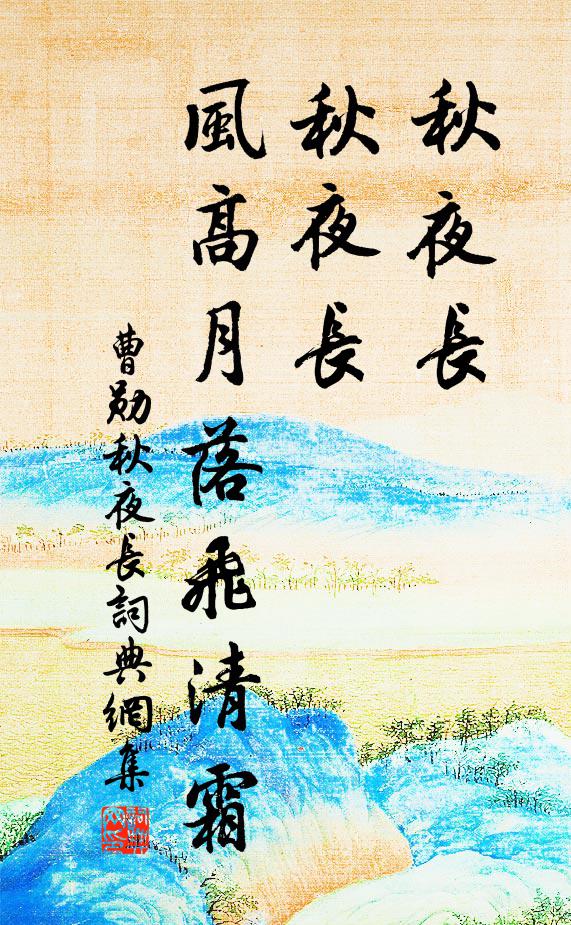 秋夜長
秋夜長
風高月落飛清霜
曹勛秋夜長詞典網集